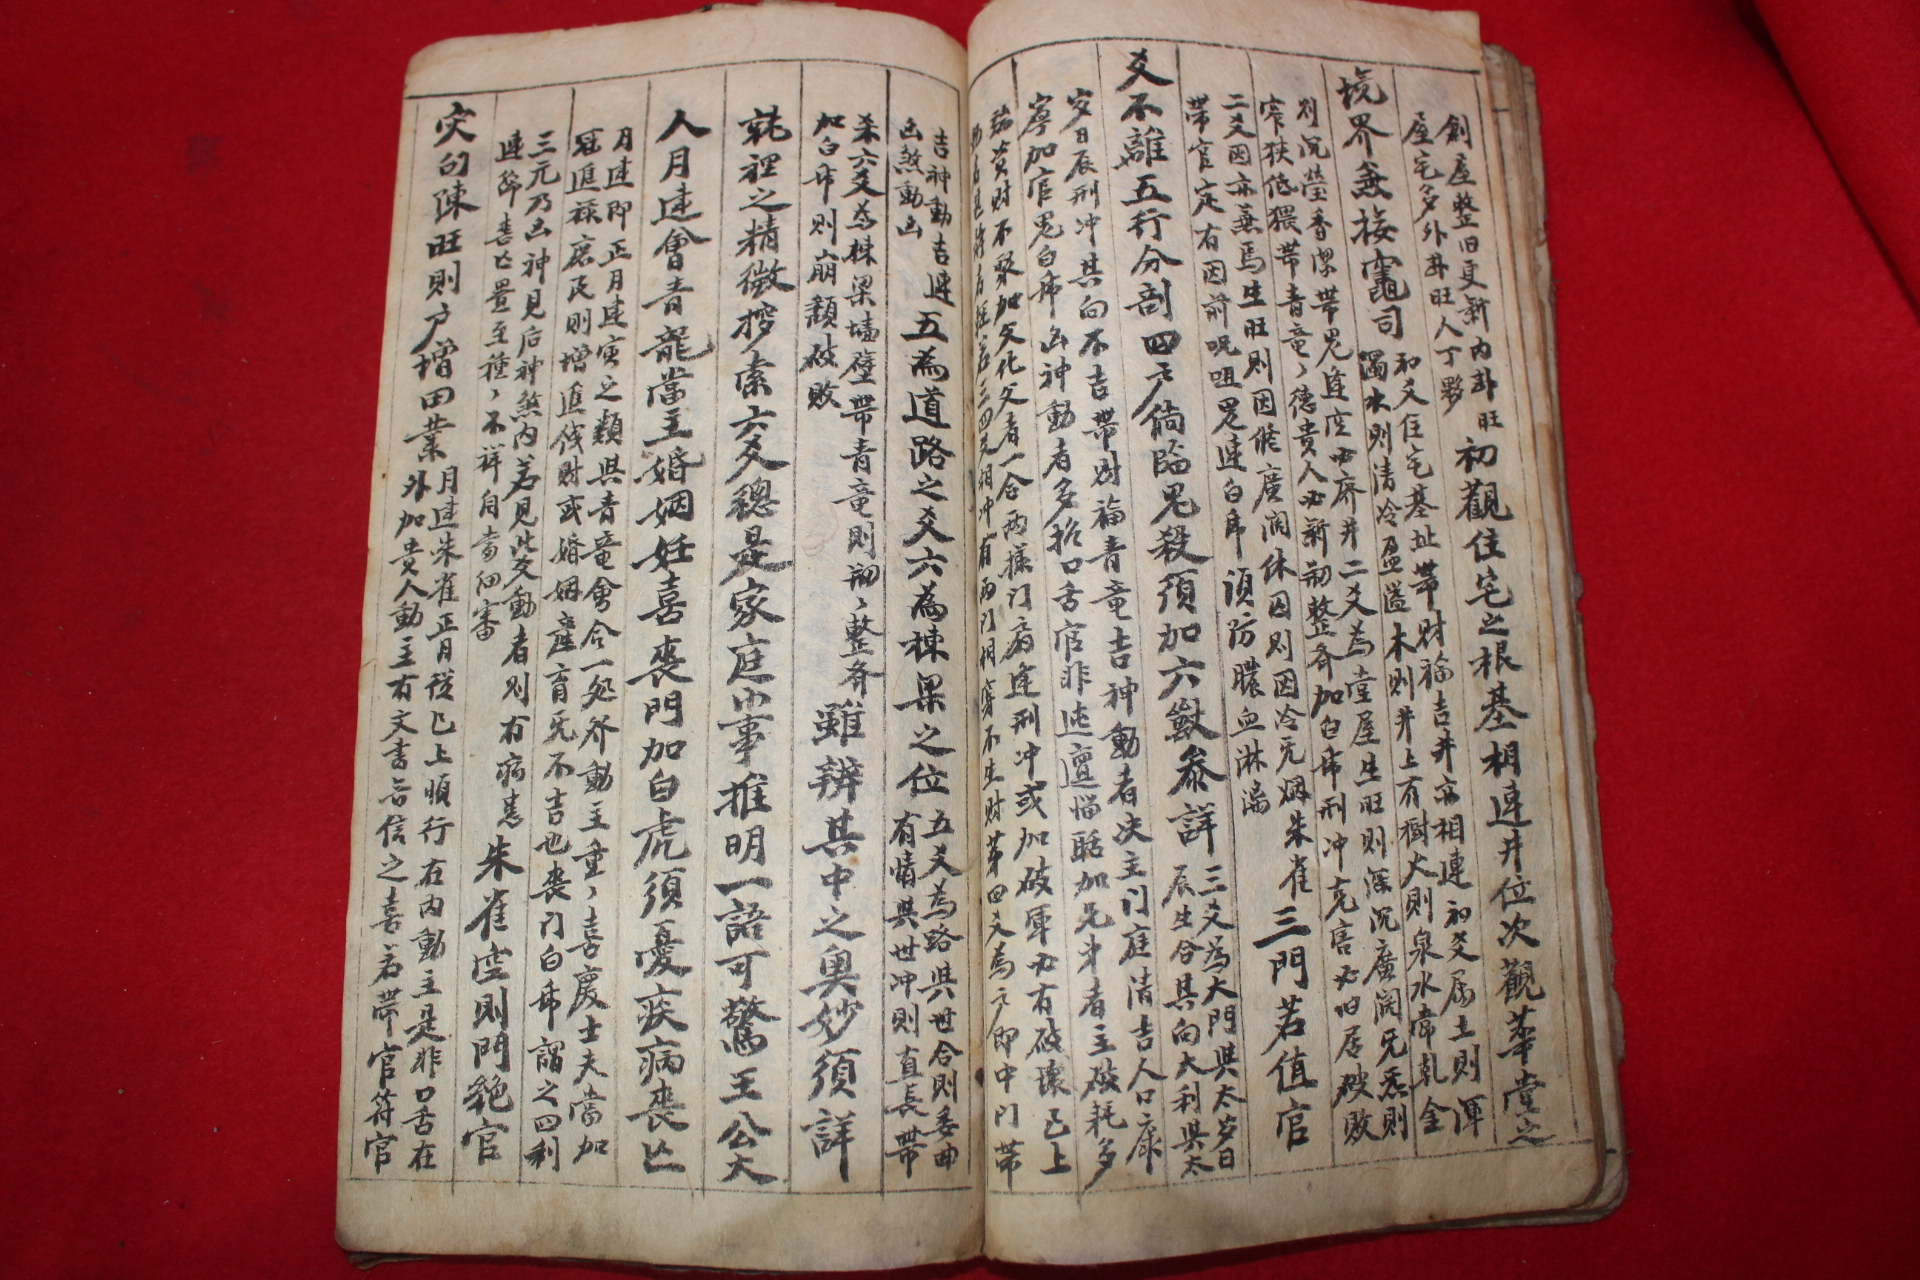 創屋整旧更新內卦旺
屋宅多外卦旺人丁夥
初觀住宅之根基相連井位次觀華堂之
境界兼接竈司
初爻住宅基址帶財福吉井亦相連初爻屬土則渾
濁水則清冷盈溢木則井上有樹火則泉水常乾金
則沉瑩香潔帶鬼逢空必廢井二爻為堂屋生旺則深沉廣闊旡炁則
窄狹低猥帶青竜〻德貴人必新剏整齐加白乕刑冲克害必旧居破敗
二爻因亦兼焉生旺則因修廣濶休囚則因冷旡烟朱雀
帶官定有因前呪咀鬼連白乕須防膿血淋漓
三門若值官
爻不離五行分剖四戶倘臨鬼殺須加六獸參詳
三爻為大門與太岁日
辰生合其向大利與太
岁日辰刑冲其向不吉帶財福青竜吉神動者决主门庭清吉人口康
寧加官鬼白乕凶神動者多招口舌官非迍邅惱聒加兄弟者主破耗多
端資財不聚加父化父者一合两樣门若逢刑冲或加破軍必有破壞已上
三四爻相冲有两门相穿不生財第四爻為戶即中门帶
吉神動吉逢
凶煞動凶
五為道路之爻六為棟梁之位
五爻為路與世合則委曲
有情與世冲則直長帶
杀六爻為棟梁墙壁帶青竜則剏〻整齐
加白乕則崩頹破敗
雖辨其中之奧妙須詳
就裡之精微摉索六爻總是家庭事推明一語可驚王公大
人月建會青龍當主婚姻妊喜喪門加白虎須憂疾病喪亡
月建即正月建寅之類與青竜會合一処齐動主重〻喜慶士夫當加
冠進祿庶民則增進伐財或婚姻產育旡不吉也喪门白乕謂之四利
三元乃凶神見后神煞內若見此爻動者則有病患
連綿喪亡疊至種〻不祥自宜細審
朱雀空則門絶官
灾勾陳旺則戶增田業
月建朱雀正月從巳上順行在內動主是非口舌在
外加貴人動主有文書音信之喜若帶官符官